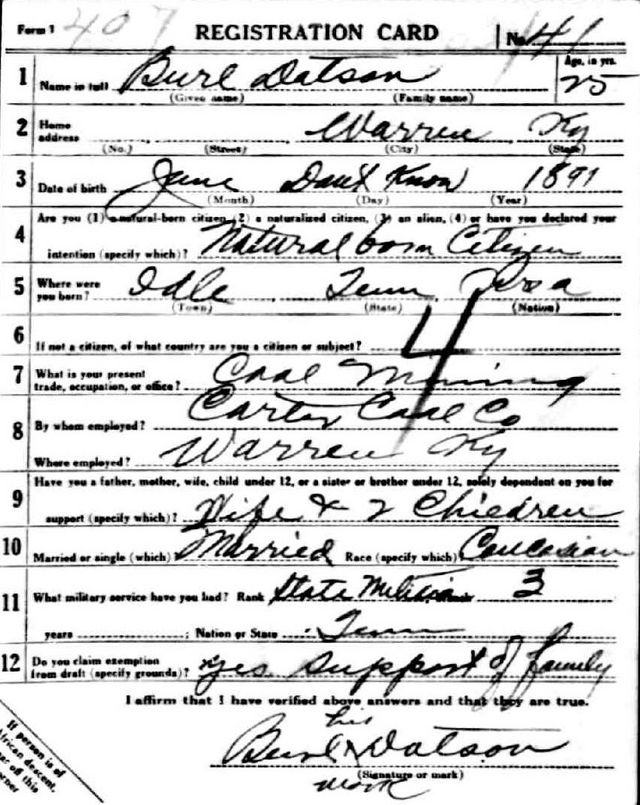 Form 1 407 REGISTRATION CARD No. 41
1 Name in full Burl Datson Age, in yrs. 25
(Given name) (Family name)
2 Home address Warren Ky
(No.) (Street) (City) (State)
3 Date of birth June Don't Know 1891
(Month) (Day) (Year)
4 Are you (1) a natural-born citizen, (2) a naturalized citizen, (3) an alien, (4) or have you declared your
intention (specify which)? Natural born Citizen
5 Where were you born? Idle Tenn
(Town) (State) (Nation)
4
6 If not a citizen, of what country are you a citizen or subject?
7 What is your present trade, occupation, or office? Coal Mining
8 By whom employed? Carter Coal Co
Where employed? Warren Ky
9 Have you a father, mother, wife, child under 12, or a sister or brother under 12, solely dependent on you for
support (specify which)? Wife & 2 Children
10 Married or single (which)? Married Race (specify which)? Caucasian
11 What military service have you had? Rank State Militia 3
years ; Nation or State Tenn
12 Do you claim exemption from draft (specify grounds)? Yes support of family
I affirm that I have verified above answers and that they are true.
his
Burl x Datson
(Signature or mark)
mark
If person is of
African descent,
off this
corner